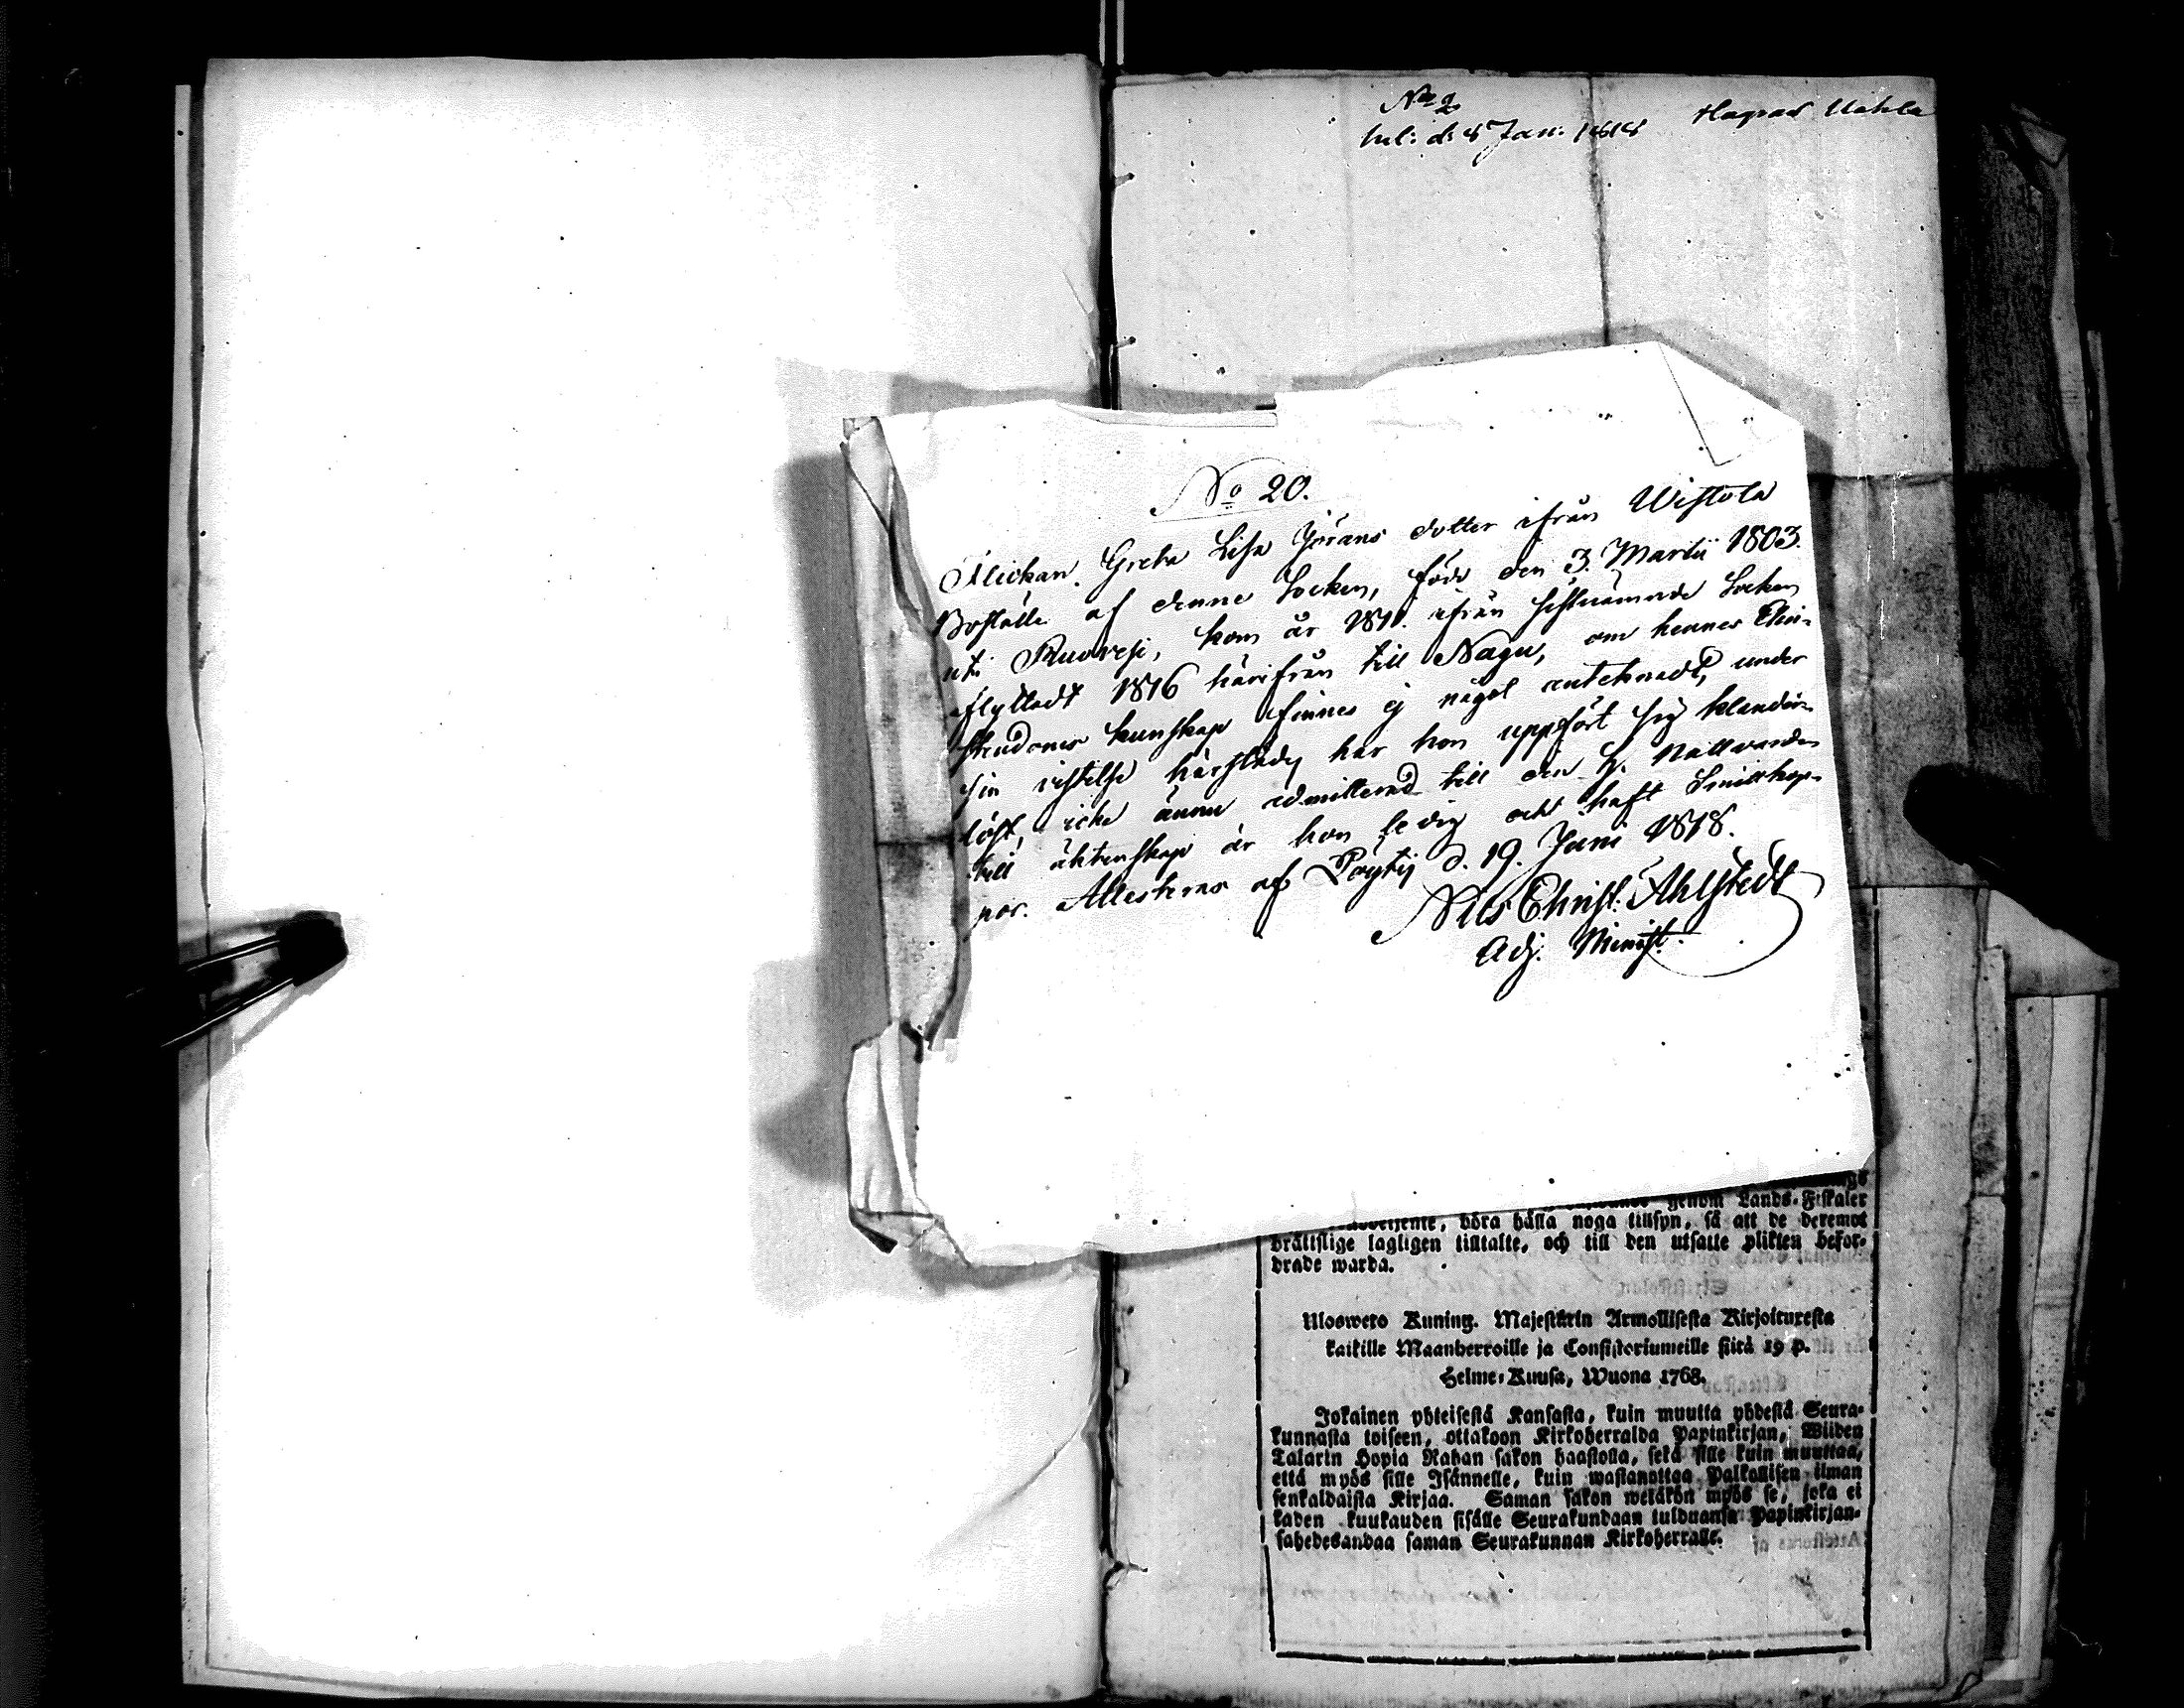 No 2
inl: d: 8 Jan: 1818
No 20.
Flickan Greta Lisa Jörans dotter ifrån Wistola
Boställe af denne Socken, född den 3. Martii 1803.
uti Ruovesi, kom år 1811. ifrån sistnämnde Socken
aflyttadt 1816 härifrån till Nagu, om hennes Chri-
stendoms kunskap finnes ej något anteknadt, under
sin vistelse härstädes har hon uppfört sig klander-
löst, icke ännu admitterad till den H. Nattvarden
till äktenskap är hon ledig och haft Smittkop-
por. Attesteras af Pöytij d. 19. Juni 1818.
Nils Christ. Ahlstedt
Adj. Minist.
genom Lands-Fiskaler
böra hålla noga tillsyn, så att de deremot
brättslige lagligen tilltalte, och till den utsatte plikten befor-
drade warda.
Uloswero Kuning. Majestätin Armollisesta Kirjoituresta
kaikille Maanherroille ja Consistoriumeille siitä 19 p.
Helme-Kuusa, Wuona 1768.
Jokainen yhteisestä Kansasta, kuin muutta yhdestä Seura-
kunnasta toiseen, ottakoon Kirkoherralda Papinkirjan, Wiiden
Talarin Hopia Rahan sakon haastolla, sekä sille kuin muuttaa,
että myös sille Isännelle, kuin wastanottaa Palkollisen ilman
senkaldaista Kirjaa. Saman sakon wetäkön myös se, joka ei
kaden kuukauden sisälle Seurakundaan tulduansa Papinkirjan-
sa edesandaa saman Seurakunnan Kirkoherralle.